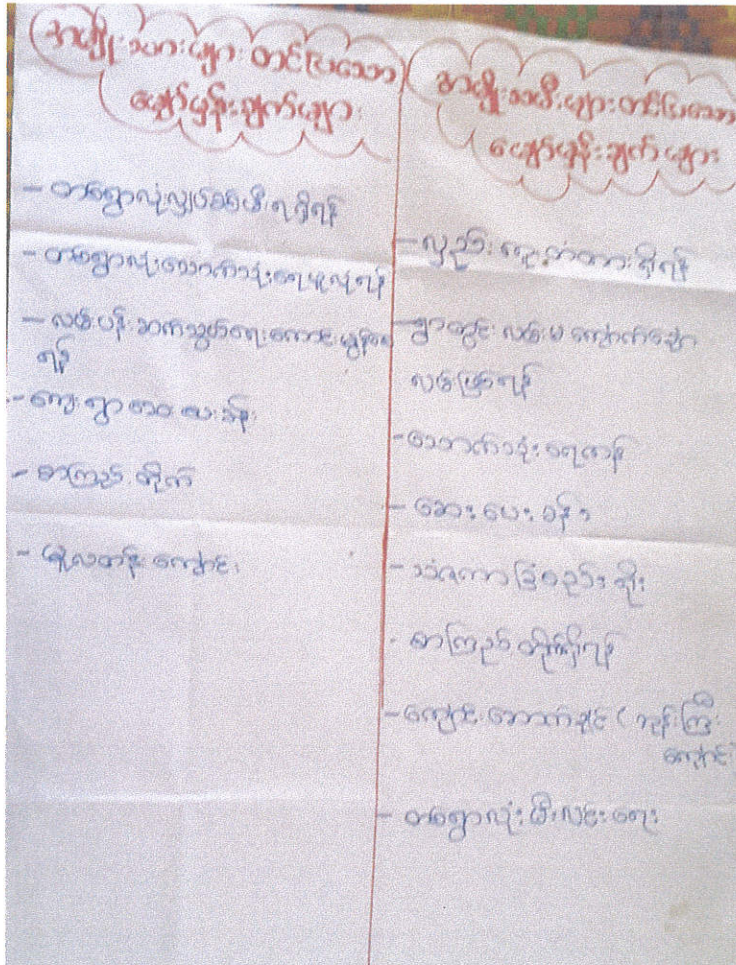 အမျိုးသားများ တင်ပြသော
မျှော်မှန်းချက်များ
- တစ်ရွာလုံးလျှပ်စစ်မီးရရှိရန်
- တစ်ရွာလုံးသောက်သုံးရေဖူလုံရန်
- လမ်းပန်းဆက်သွယ်ရေးကောင်းမွန်စေ
ရန်
- ကျေးရွာဆေးပေးခန်း
- စာကြည့်တိုက်
- မူလတန်းကျောင်း
အမျိုးသမီးများတင်ပြသော
မျှော်မှန်းချက်များ
- လှည်းကူးတံတားရှိရန်
- ရွာတွင်းလမ်းမကျောက်ချော
လမ်းဖြစ်ရန်
- သောက်သုံးရေကန်
- ဆေးပေးခန်း
- သံဇကာခြံစည်းရိုး
- စာကြည့်တိုက်ရှိရန်
- ကျောင်းဆောက်ချင် (ဘုန်းကြီး
ကျောင်း)
- တစ်ရွာလုံးမီးလင်းရေး